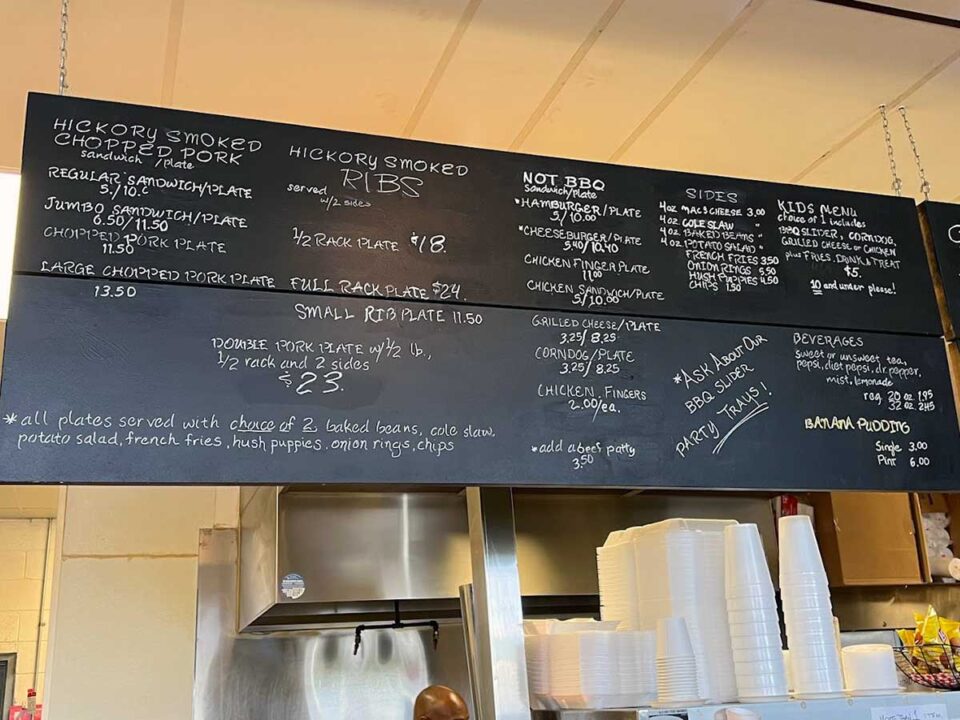 HICKORY SMOKED
CHOPPED PORK
sandwich /plate
REGULAR SANDWICH/PLATE
5./10.
JUMBO SANDWICH/PLATE
6.50/11.50
CHOPPED PORK PLATE
11.50
LARGE CHOPPED PORK PLATE
13.50
HICKORY SMOKED
RIBS
served
w/2 sides
1/2 RACK PLATE $18.
FULL RACK PLATE $24.
SMALL RIB PLATE 11.50
DOUBLE PORK PLATE w/1/2 lb.,
1/2 rack and 2 sides
$23.
*all plates served with choice of 2, baked beans, cole slaw,
potato salad, french fries, hush puppies, onion rings, chips
NOT BBQ
Sandwich/Plate
*HAMBURGER/PLATE
5./10.00
*CHEESEBURGER/PLATE
5.40/10.40
CHICKEN FINGER PLATE
11.00
CHICKEN SANDWICH/PLATE
5./10.00
GRILLED CHEESE/PLATE
3.25/8.25
CORNDOG/PLATE
3.25/8.25
CHICKEN FINGERS
2.00/ea.
*add a beef patty
3.50
SIDES
4 oz MAC & CHEESE 3.00
4 oz COLE SLAW "
4 oz BAKED BEANS "
4 oz POTATO SALAD "
FRENCH FRIES 3.50
ONION RINGS 5.50
HUSH PUPPIES 4.50
CHIPS 1.50
*ASK ABOUT OUR
BBQ SLIDER
PARTY TRAYS!
KIDS MENU
choice of 1 includes
BBQ SLIDER, CORNDOG,
GRILLED CHEESE or CHICKEN
plus FRIES, DRINK & TREAT
$5.
10 and under please!
BEVERAGES
sweet or unsweet tea,
pepsi, diet pepsi, dr. pepper,
mist, lemonade
reg. 20 oz 1.95
32 oz 2.45
BANANA PUDDING
Single 3.00
Pint 6.00